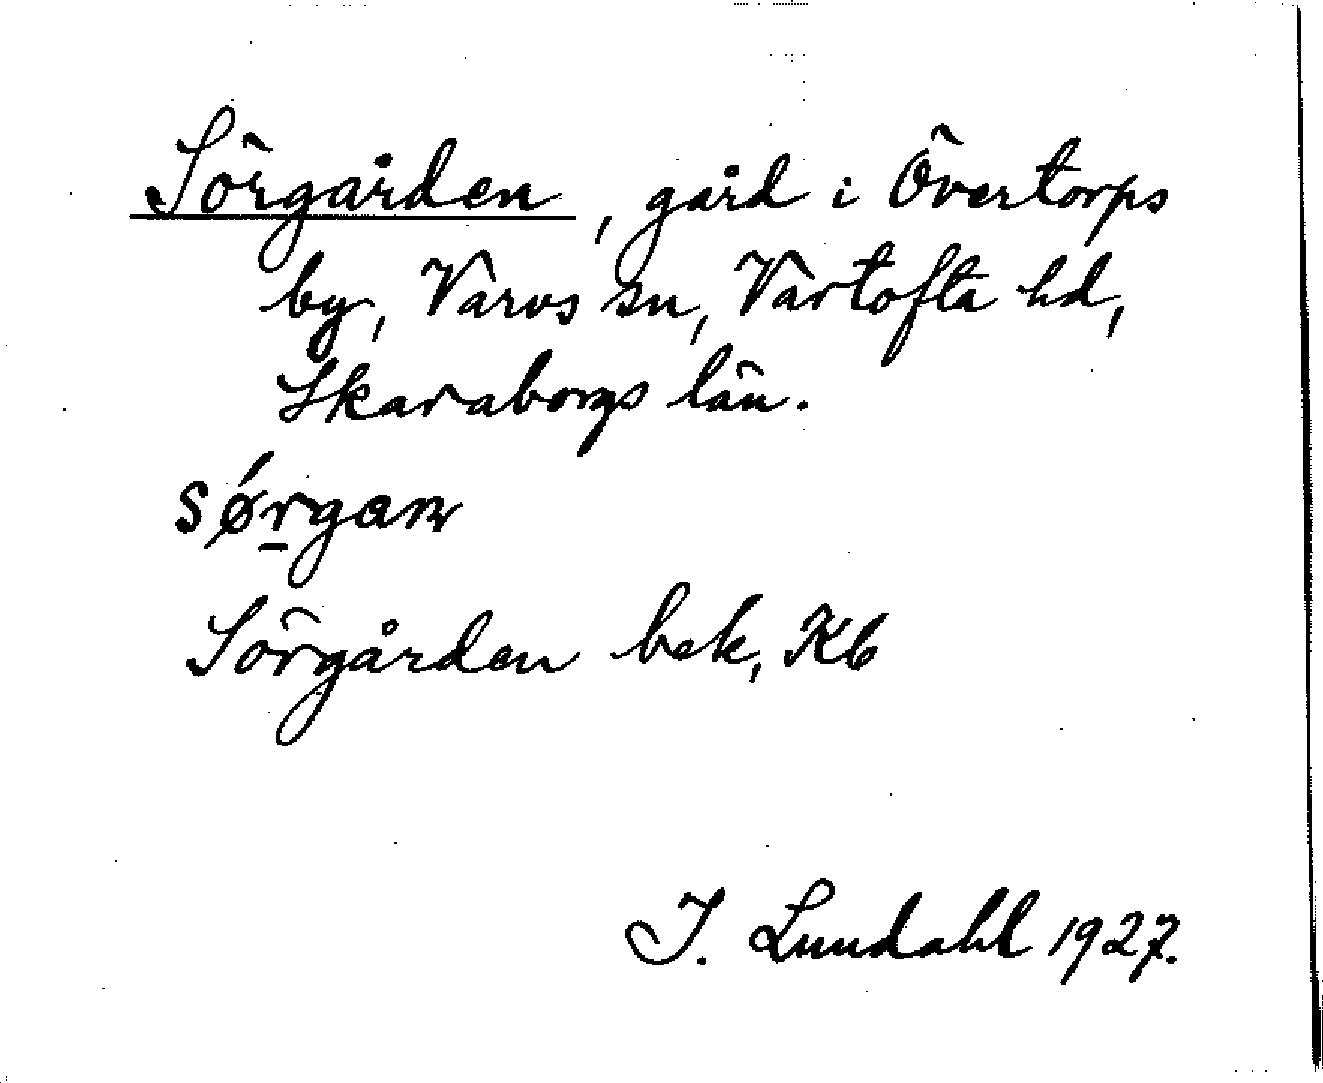 Sörgården, gård i Övertorps
by, Varvs sn, Vartofta hd,
Skaraborgs län.
sǿrgaɳ
Sörgården bek, Kb
I. Lundahl 1927.